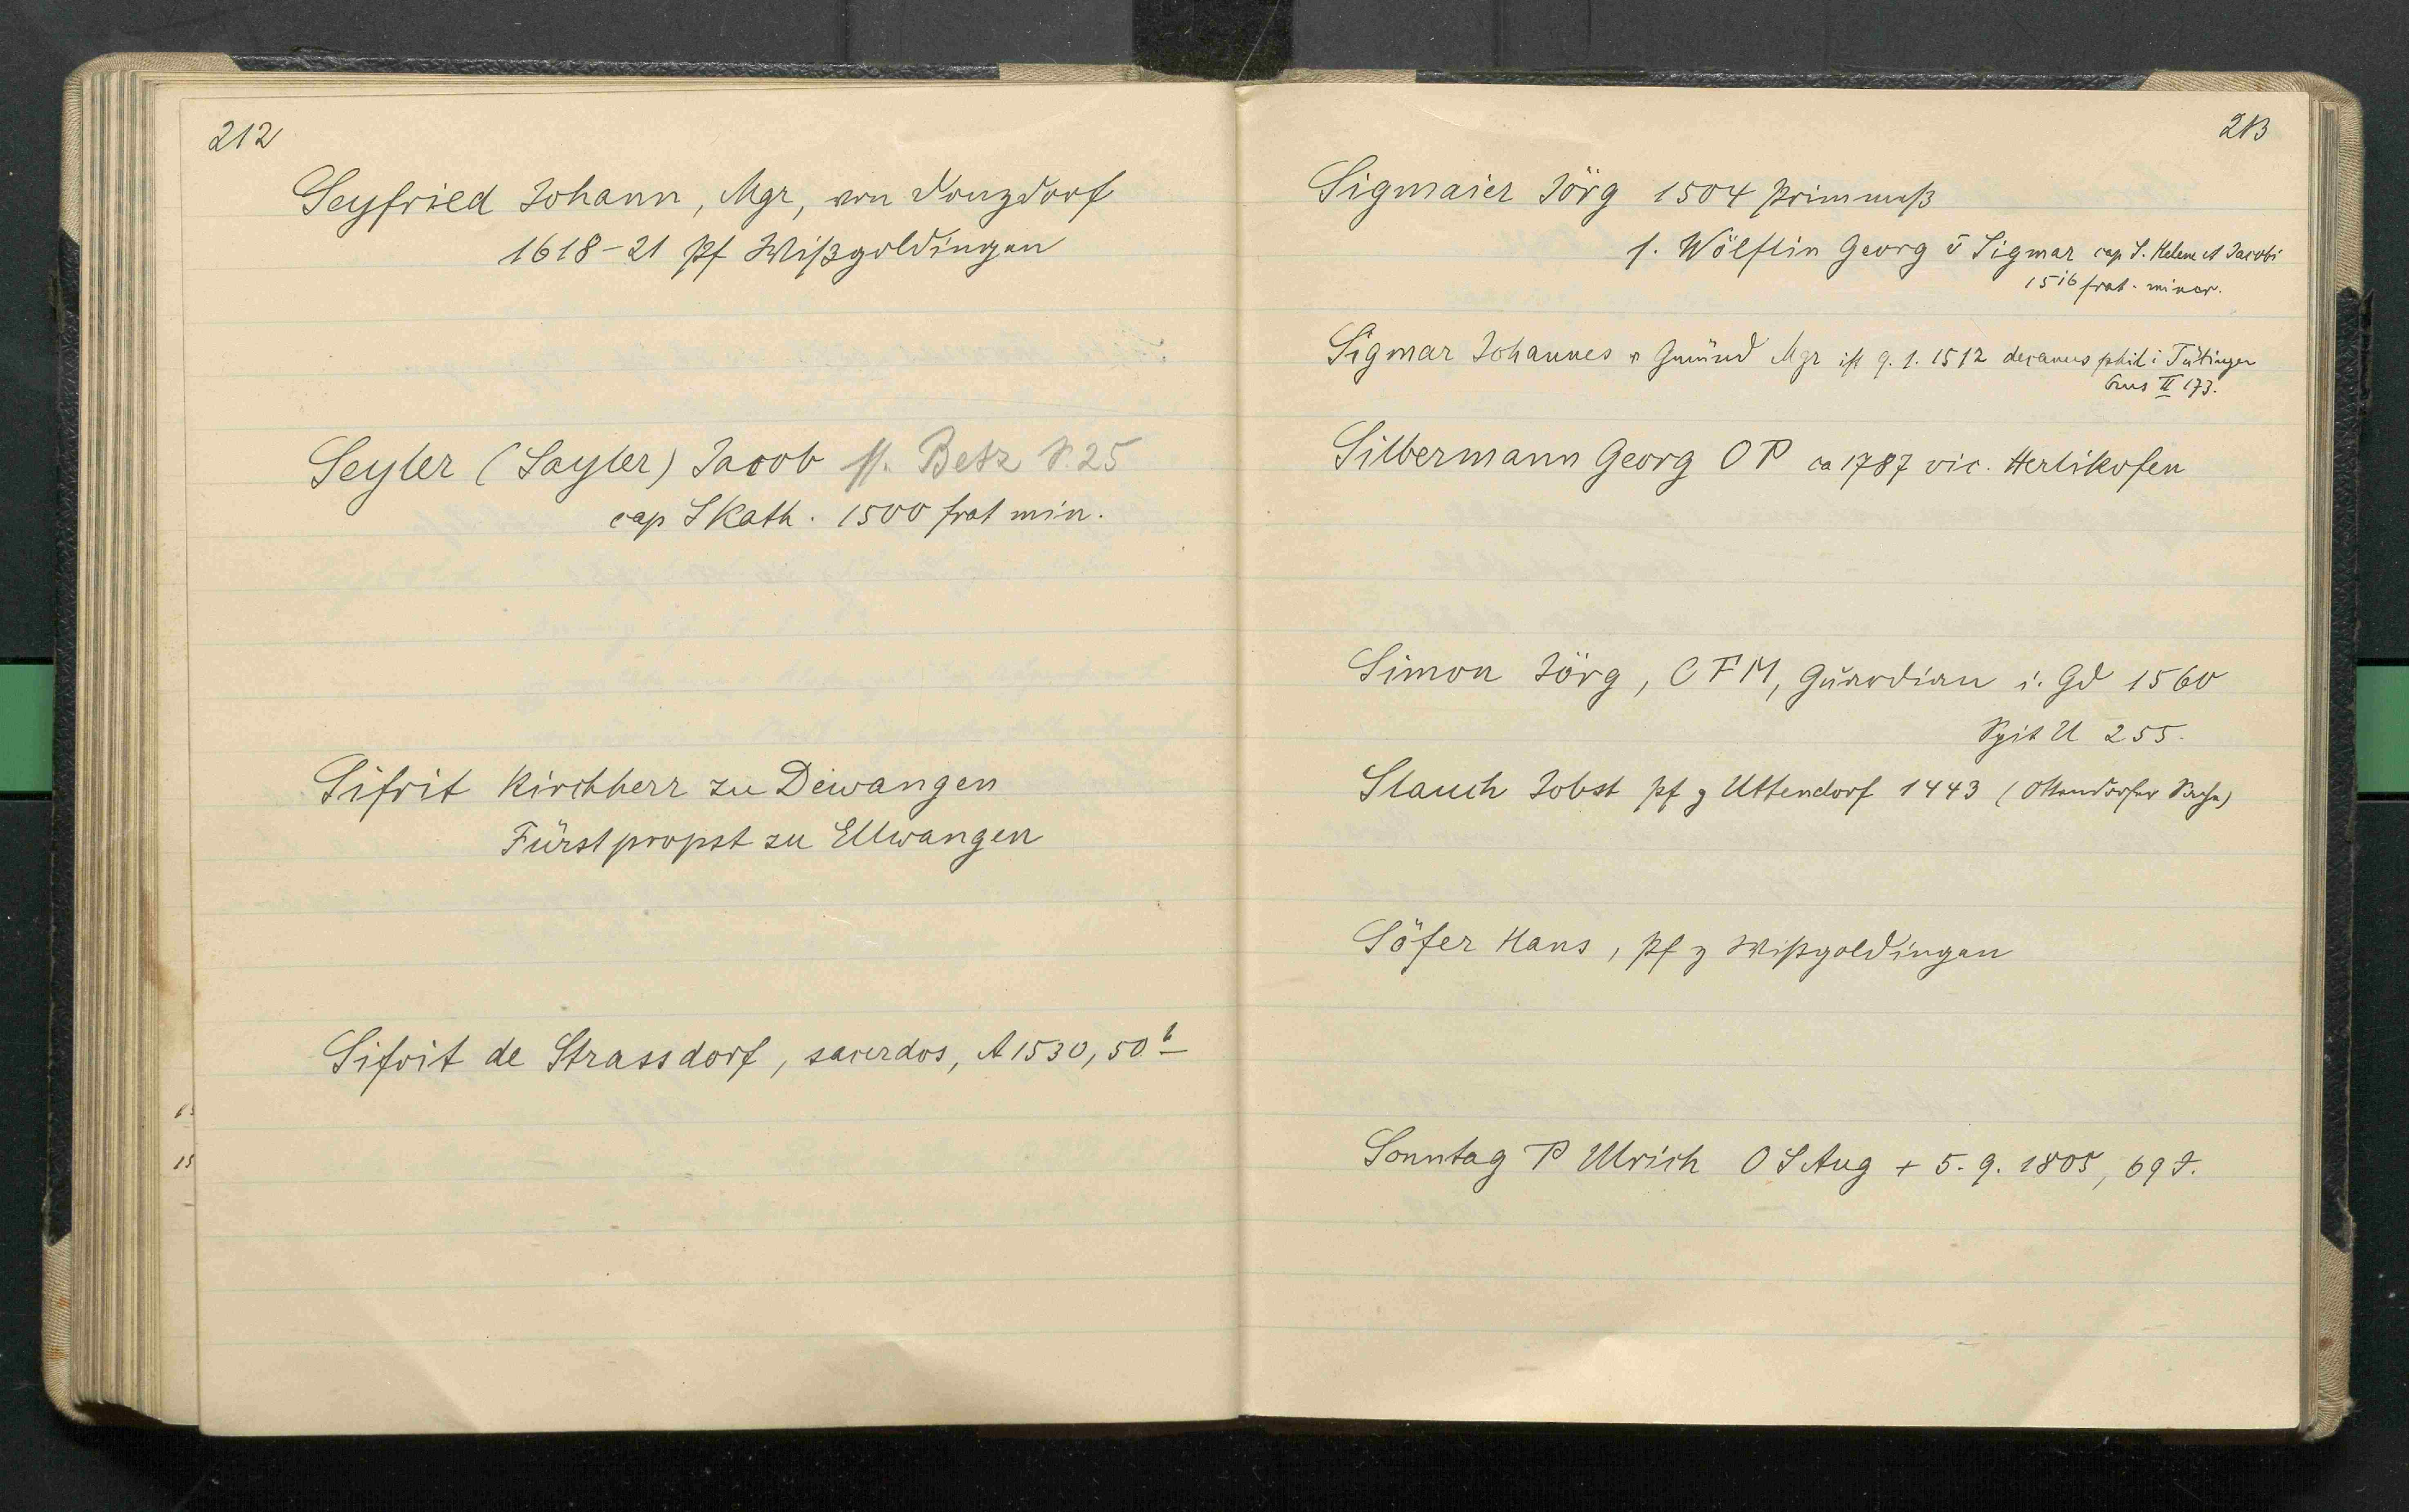 212
Seyfried Johann, Mgr, von Donzdorf
1618-21 Pf Wißgoldingen
Seyler (Sayler) Jacob s. Betz S. 25
cap S Kath. 1500 frat min.
Sifrit Kirchherr zu Dewangen
Fürstpropst zu Ellwangen
Sifrit de Strassdorf, sacerdos, A 1530, 50 b
213
Sigmaier Jörg 1504 Primmeß
s. Wölflin Georg v Sigmar cap S. Helene et Jacobi
1516 frat. minor.
Sigmar Johannes v Gmünd Mgr ist 9. 1. 1512 decanus phil i Tübingen
Crus II 173.
Silbermann Georg OP ca 1787 vic. Herlikofen
Simon Jörg, OFM, Guardian i. Gd 1560
Spit U 255.
Slauch Jobst Pf z Uttendorf 1443 (Ottendorfer
Söfer Hans, Pf z Wißgoldingen
Sonntag P Ulrich O S Aug + 5. 9. 1805, 69 J.